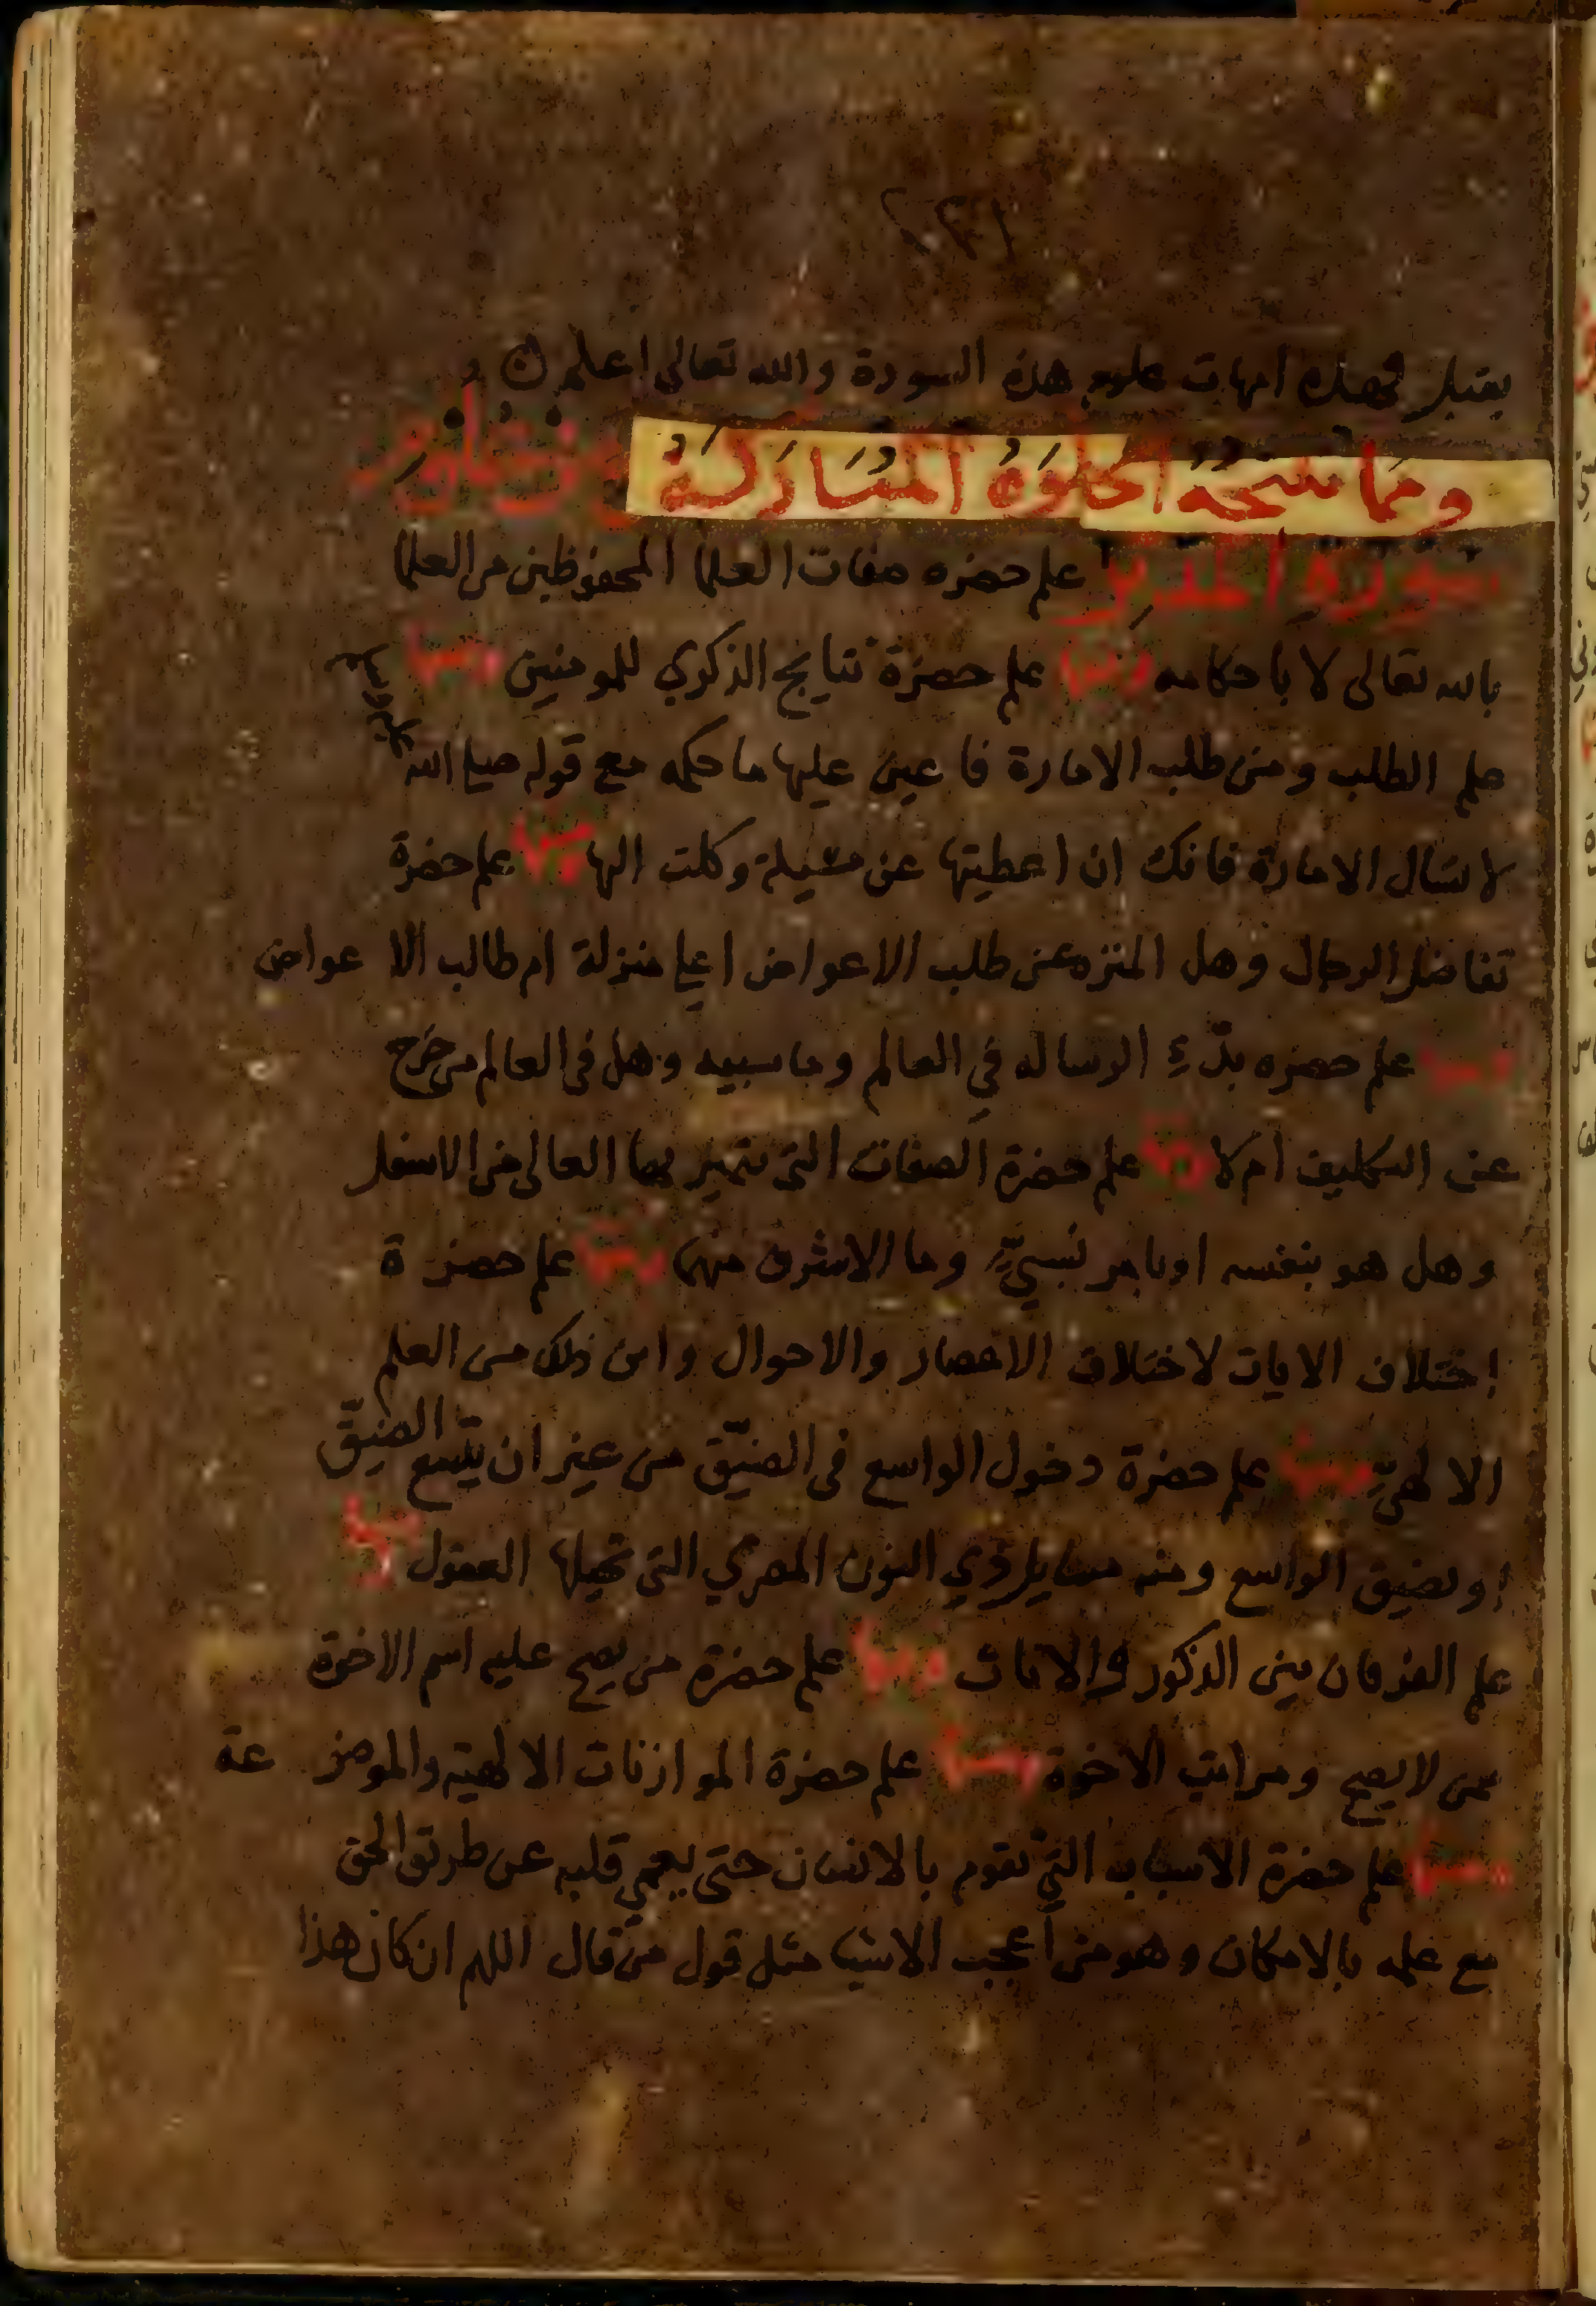 ٢٣١
يقبل فهذه امهات علوم هذه السورة والله تعالى اعلم
ومما نتيجة الخلوة المباركة
سورة المدثر علم حضره صفات العلما المحفوظين من العلما
بالله تعالى لا باحكامه ومنها علم حضرة نتايج الذكري للمومنين ومنها
علم الطلب ومن طلب الامارة فاعين عليها ما حكمه مع قوله صلى الله عليه وسلم
لا تسال الامارة فانك ان اعطيتها عن مسيلة وكلت اليها ومنها علم حضرة
تفاضل الرجال وهل المنزه عن طلب الاعواض اعلي منزلة ام طالب الاعواض
ومنها علم حضره بدّءِ الرساله في العالم وما سببه وهل في العالم من خرج
عن التكليف ام لا ومنها علم حضرة الصفات التي يتميز بها العالي من الاسفل
وهل هو بنفسه او بامر نسبيٍّ وما الاشرف منهما ومنها علم حضرة
اختلاف الايات لاختلاف الاعصار والاحوال واين ذلك من العلم
الالهيِّ ومنها علم حضرة دخول الواسع في الضيّق من غير ان يتّسع الضيّق
او يضيق الواسع ومنه مسايل ذي النون المصري التي تحيلها العقول ومنها
علم الفرقان بين الذكور والاناث ومنها علم حضرة من يصح عليه اسم الاخوة
ممن لا يصح ومراتب الاخوة ومنها علم حضرة الموازنات الالهيه والموضوعة
ومنها علم حضرة الاسباب التي تقوم بالانسان حتى يعمي قلبه عن طريق الحق
مع علمه بالامكان وهو من اعجب الاشيا مثل قول من قال اللهم ان كان هذا